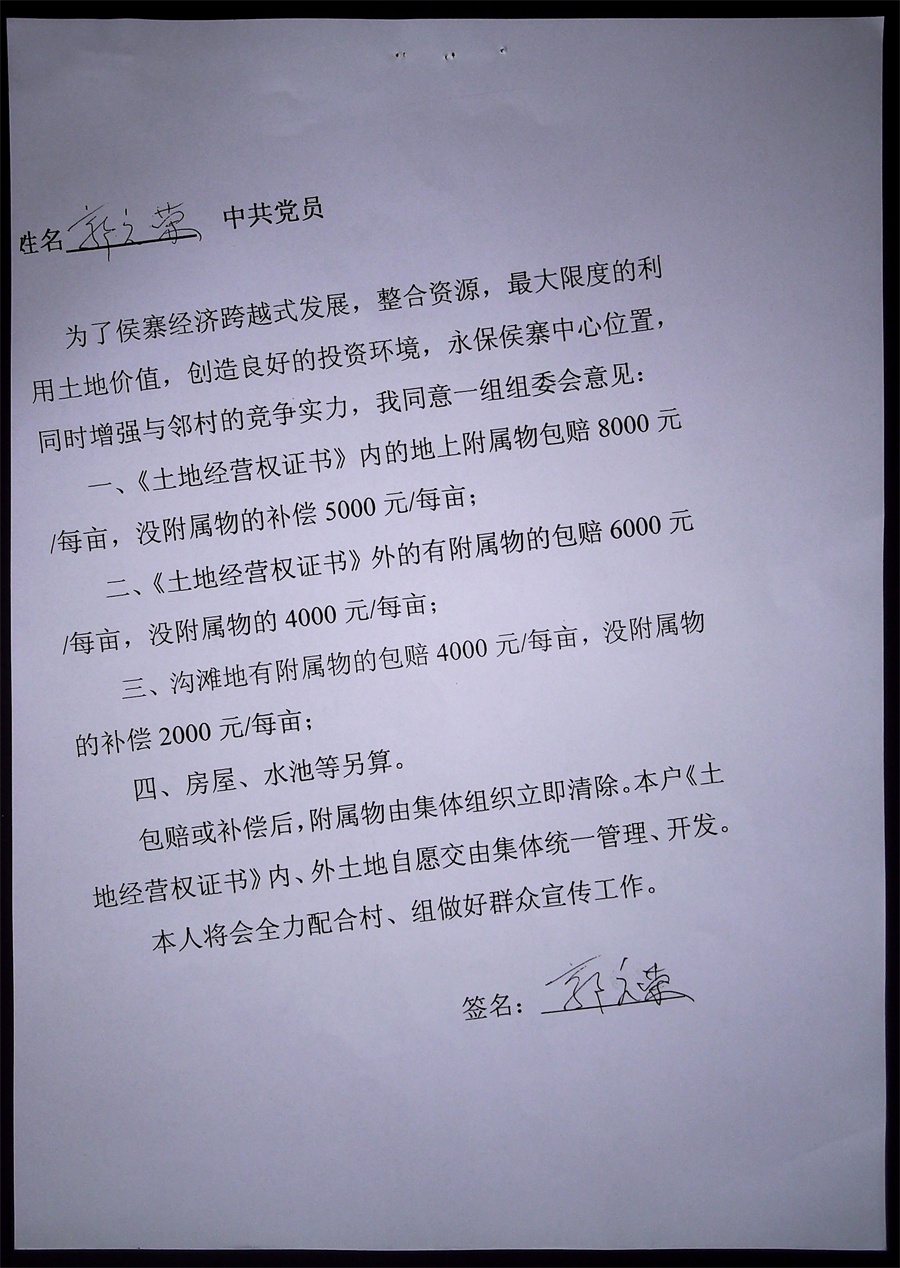 姓名郭立荣 中共党员
为了侯寨经济跨越式发展，整合资源，最大限度的利
用土地价值，创造良好的投资环境，永保侯寨中心位置，
同时增强与邻村的竞争实力，我同意一组组委会意见：
一、《土地经营权证书》内的地上附属物包赔 8000 元
/每亩，没附属物的补偿 5000 元/每亩；
二、《土地经营权证书》外的有附属物的包赔 6000 元
/每亩，没附属物的 4000 元/每亩；
三、沟滩地有附属物的包赔 4000 元/每亩，没附属物
的补偿 2000 元/每亩；
四、房屋、水池等另算。
包赔或补偿后，附属物由集体组织立即清除。本户《土
地经营权证书》内、外土地自愿交由集体统一管理、开发。
本人将会全力配合村、组做好群众宣传工作。
签名：郭立荣